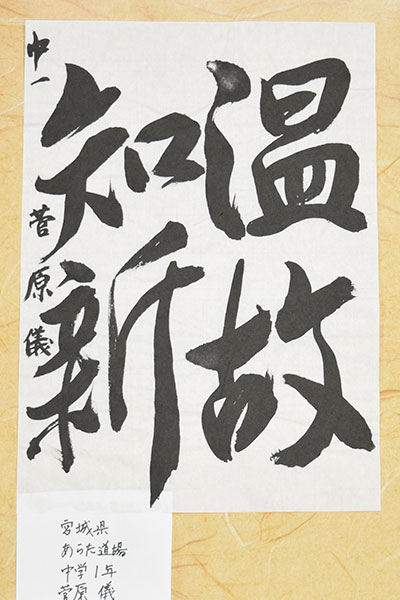 温故
知新
中一 菅原儀
宮城県
あらた道場
中学1年
菅原 儀